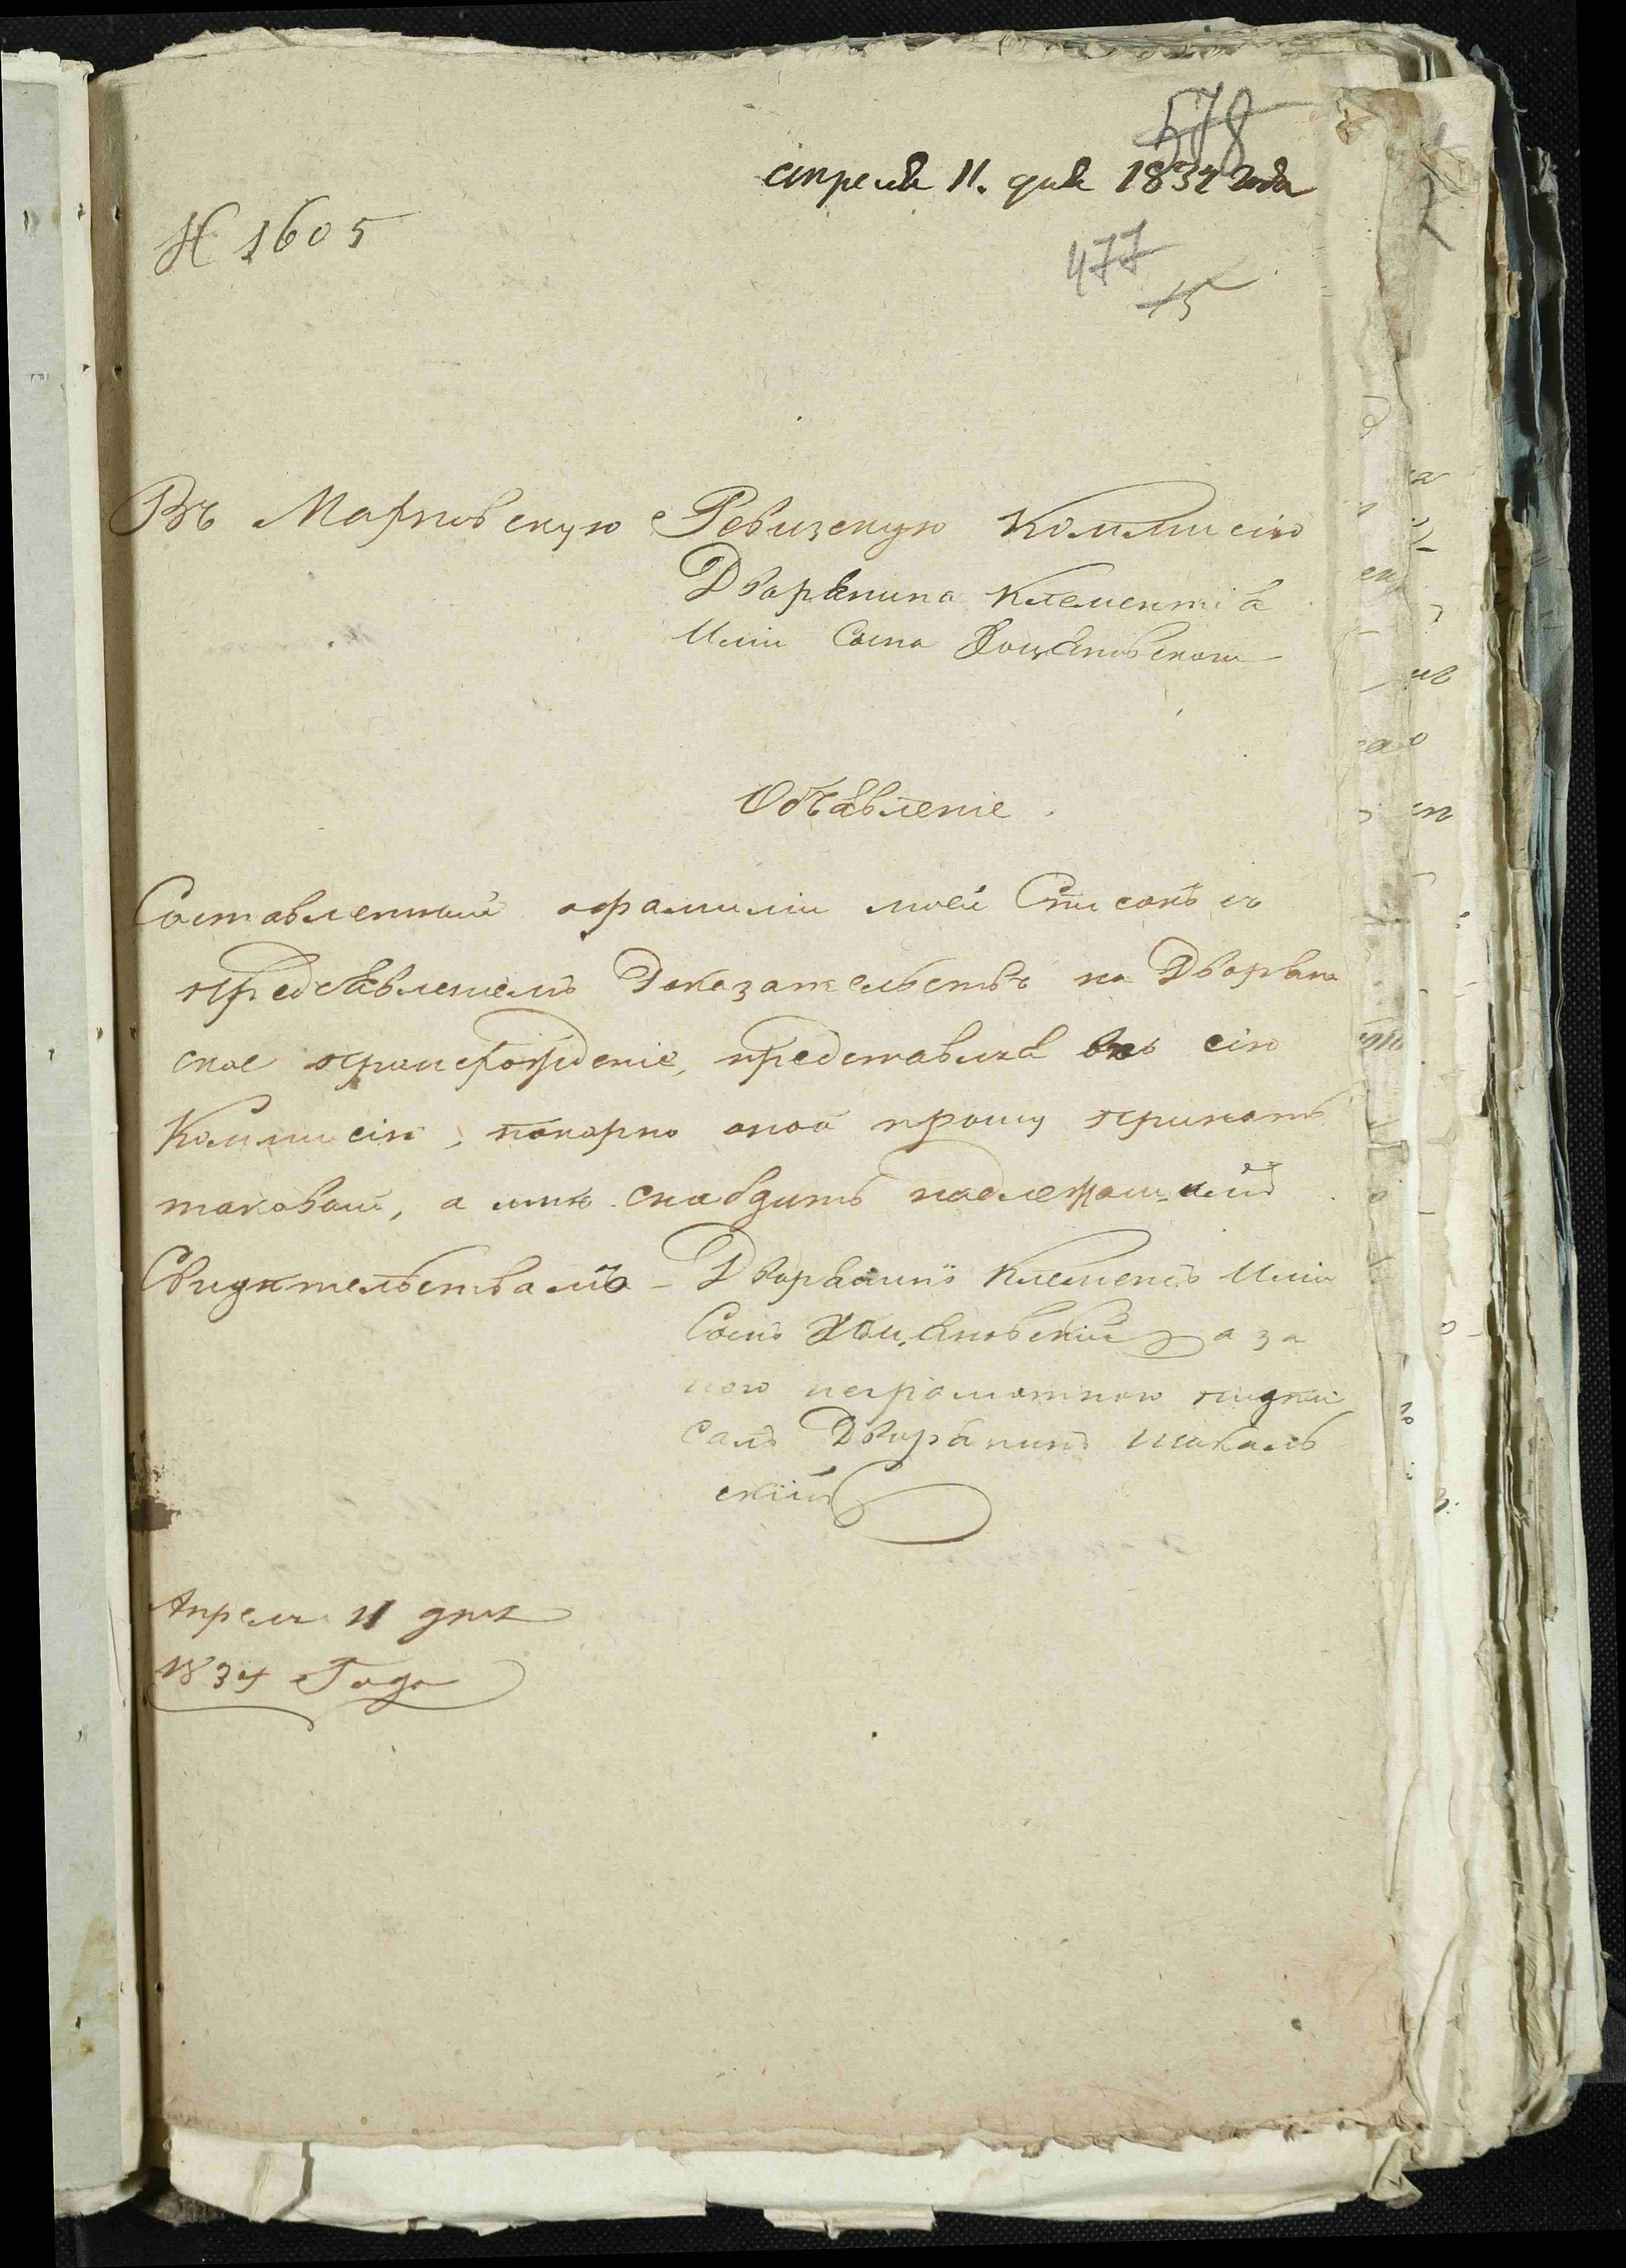 578
апреля 11. дня 1834 года
№ 1605
477
15
Въ Марковскую Ревизскую Коммисію
Дворянина Клементія
Ильи Сына
Объявленіе.
Составленный о фамиліи моей Списокъ съ
предъявленіемъ Доказательствъ на Дворян
ское происрожденіе, представляя въ сію
Коммисію, покорно оной прошу принять
таковый, а мнѣ снабдить надлежащимъ
Свидѣтельствамъ – Дворянинъ Клементъ Ильи
Сынъ а за
него неграмотного подпи
салъ Дворянинъ Шакаль
скій
Апреля 11 дня
1834 Года